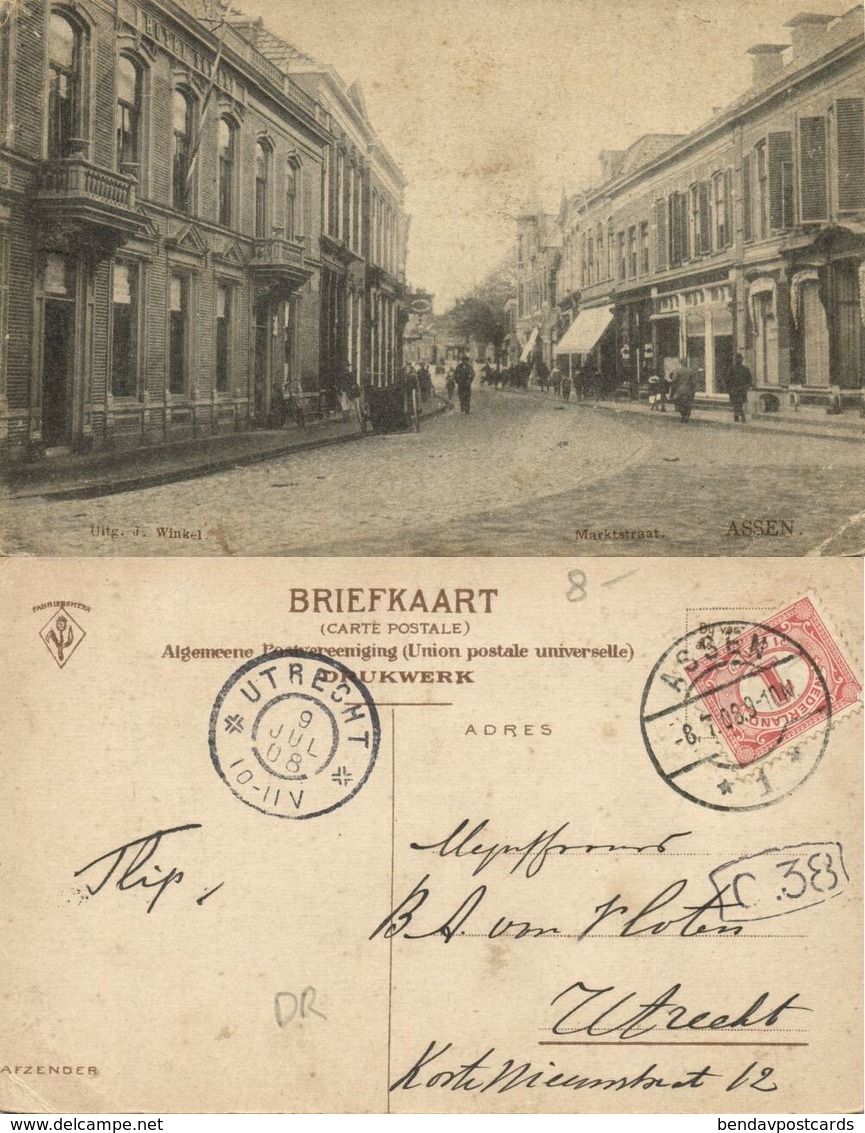 Uitg. J. Winkel.
Marktstraat. ASSEN.
FABRIEKSMERK
BRIEFKAART
(CARTE POSTALE)
Algemeene Postvereeniging (Union postale universelle)
DRUKWERK
8-
UTRECHT
9
JUL
08
10-11 V
ASSEN
-8.7.08.9-10N
1
NEDERLAND
1
ADRES
Flip,
Mejuffrouw
B A. van Vloten
C.38
Utrecht
Korte Nieuwstraat 12
DR
AFZENDER
delcampe.net
bendavpostcards